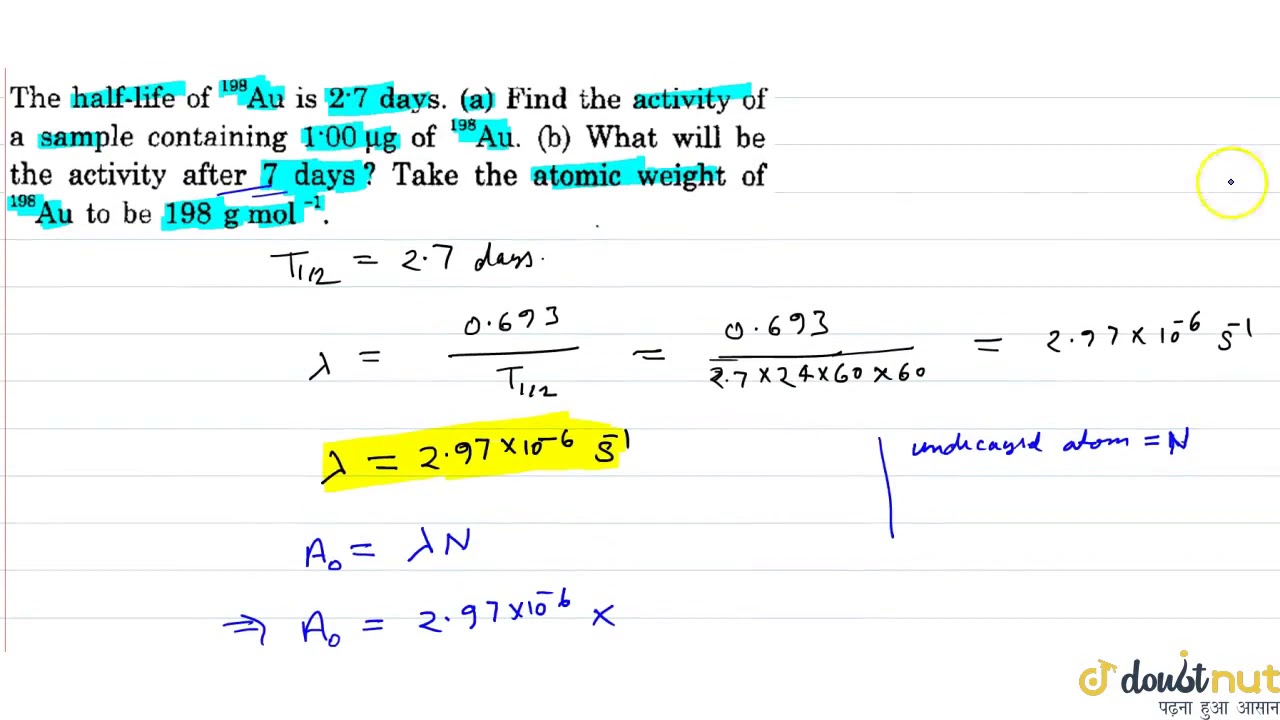 The half-life of ¹⁹⁸Au is 2·7 days. (a) Find the activity of
a sample containing 1·00 µg of ¹⁹⁸Au. (b) What will be
the activity after 7 days? Take the atomic weight of
¹⁹⁸Au to be 198 g mol⁻¹.
T₁/₂ = 2.7 days.
λ = 0.693 / T₁/₂ = 0.693 / 2.7×24×60×60 = 2.97×10⁻⁶ s⁻¹
λ = 2.97×10⁻⁶ s⁻¹
undecayed atom = N
A₀ = λN
⇒ A₀ = 2.97×10⁻⁶ ×
doubtnut
पढ़ना हुआ आसान